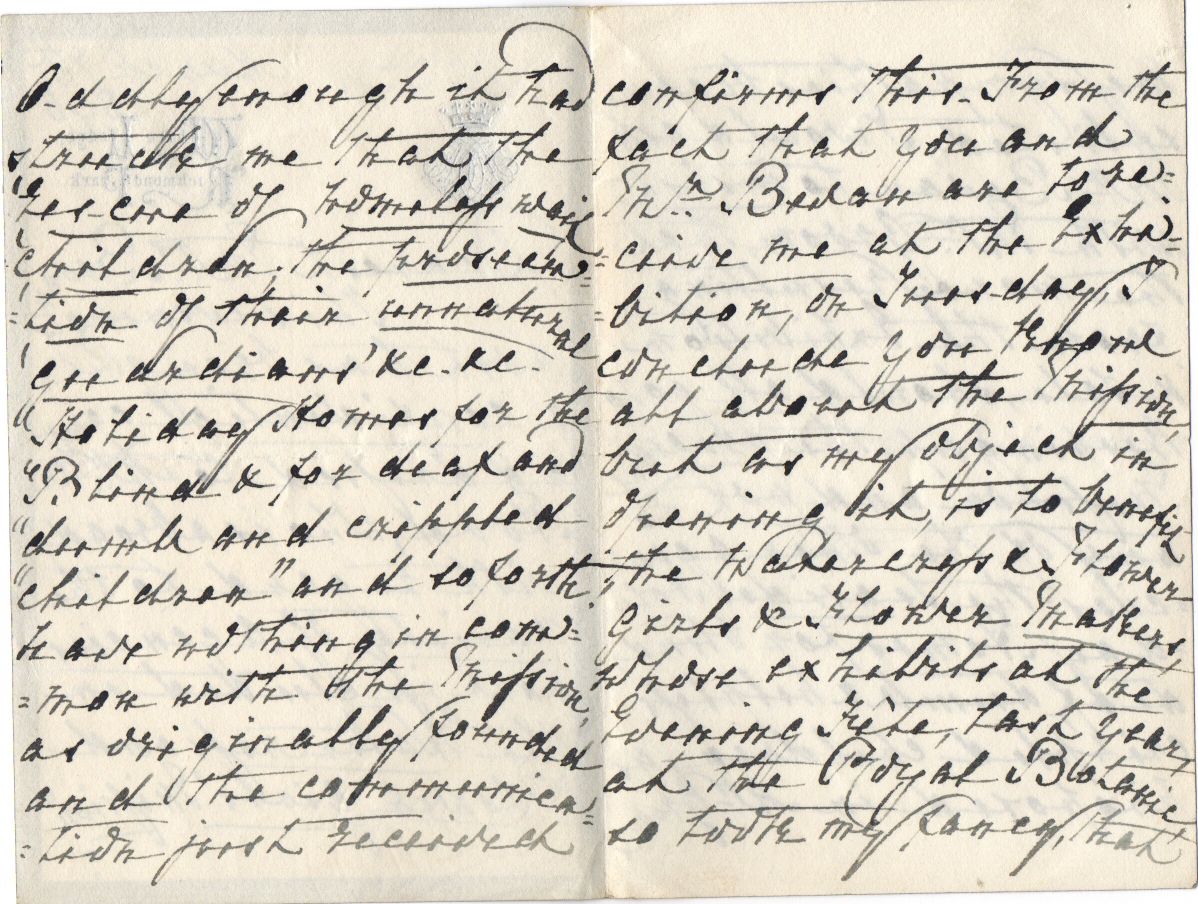 Oddly enough it had
struck me that the
"Rescue of homeless waif
"children; the prosecu=
=tion of their unnatural
"guardians' &c. &c.
"Holiday Homes for the
"Blind & for deaf and
"dumb and crippled
"children" and so forth,
have nothing in com=
=mon with the Mission,
as originally founded
and the communica=
=tion just received
confirms this. From the
fact that you and
Mrs. Bevan are to re=
=ceive me at the Exhi=
=bition, on Tuesday, I
conclude you know
all about the Mission,
but as my object in
opening it, is to benefit
the Watercress & Flower
Girls & Flower Makers
whose exhibits at the
Evening Fête, last year,
at the Royal Botanic
so took my fancy, that